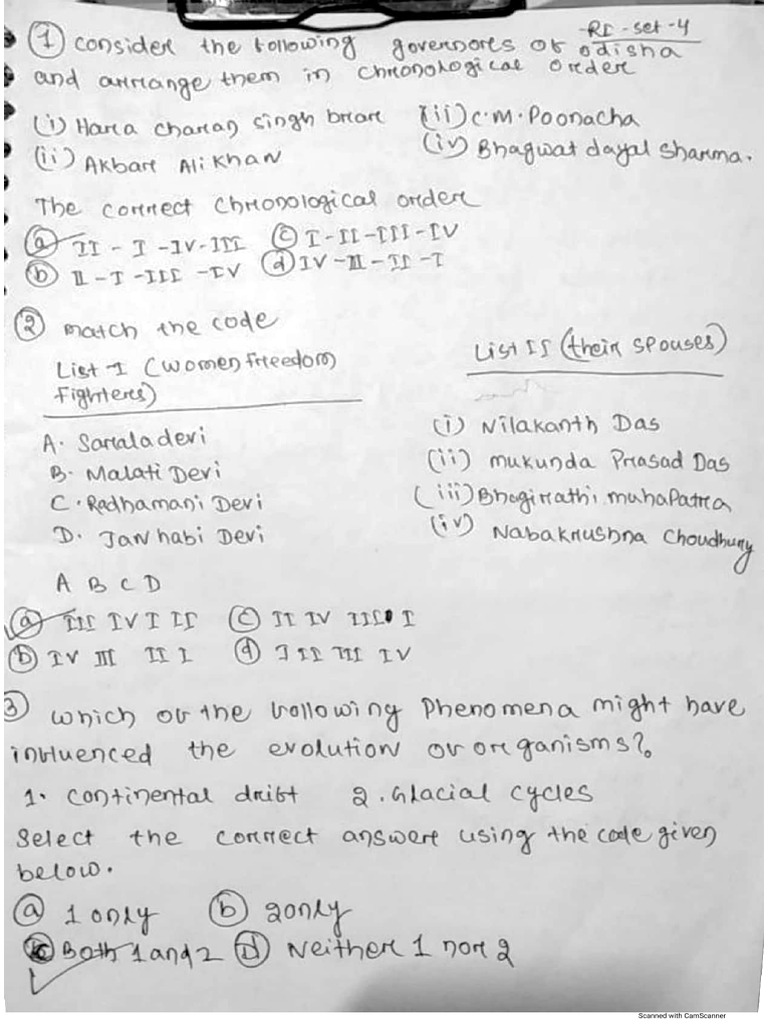 -RI-set-4
① consider the following governors of odisha
and arrange them in chronological order
(i) Hara charan singh brar (iii) C.M. Poonacha
(ii) Akbar Ali Khan (iv) Bhagwat dayal Sharma.
The correct chronological order
ⓐ II - I - IV - III ⓒ I - II - III - IV
ⓑ II - I - III - IV ⓓ IV - II - II - I
② match the code
List-I (women freedom List II (their spouses)
Fighters)
A. Sarala devi (i) Nilakanth Das
B. Malati Devi (ii) mukunda Prasad Das
C. Radhamani Devi (iii) Bhagirathi mahapatra
D. Janhabi Devi (iv) Nabakrushna Choudhury
A B C D
ⓐ III IV I II ⓒ II IV III I
ⓑ IV III II I ⓓ I II III IV
③ which of the following Phenomena might have
influenced the evolution of organisms?
1. continental drift 2. Glacial cycles
Select the correct answer using the code given
below.
ⓐ 1 only ⓑ 2 only
ⓒ Both 1 and 2 ⓓ Neither 1 nor 2
Scanned with CamScanner